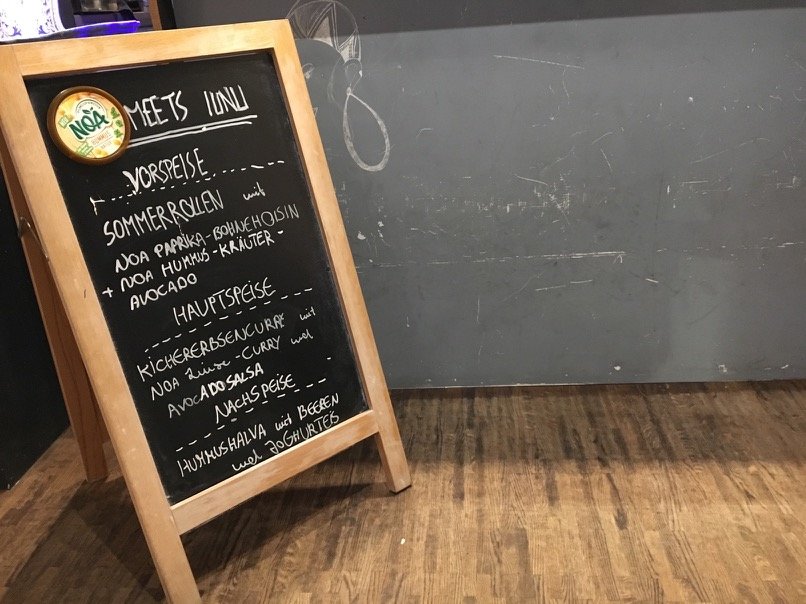 NOA
HUMMUS
MEETS IUNU
VORSPEISE
SOMMERROLLEN mit
NOA PAPRIKA-BOHNEHOISIN
+ NOA HUMMUS-KRÄUTER-
AVOCADO
HAUPTSPEISE
KICHERERBSENCURRY mit
NOA Linse-CURRY und
AVOCADOSALSA
NACHSPEISE
HUMMUSHALVA mit BEEREN
und JOGHURTEIS